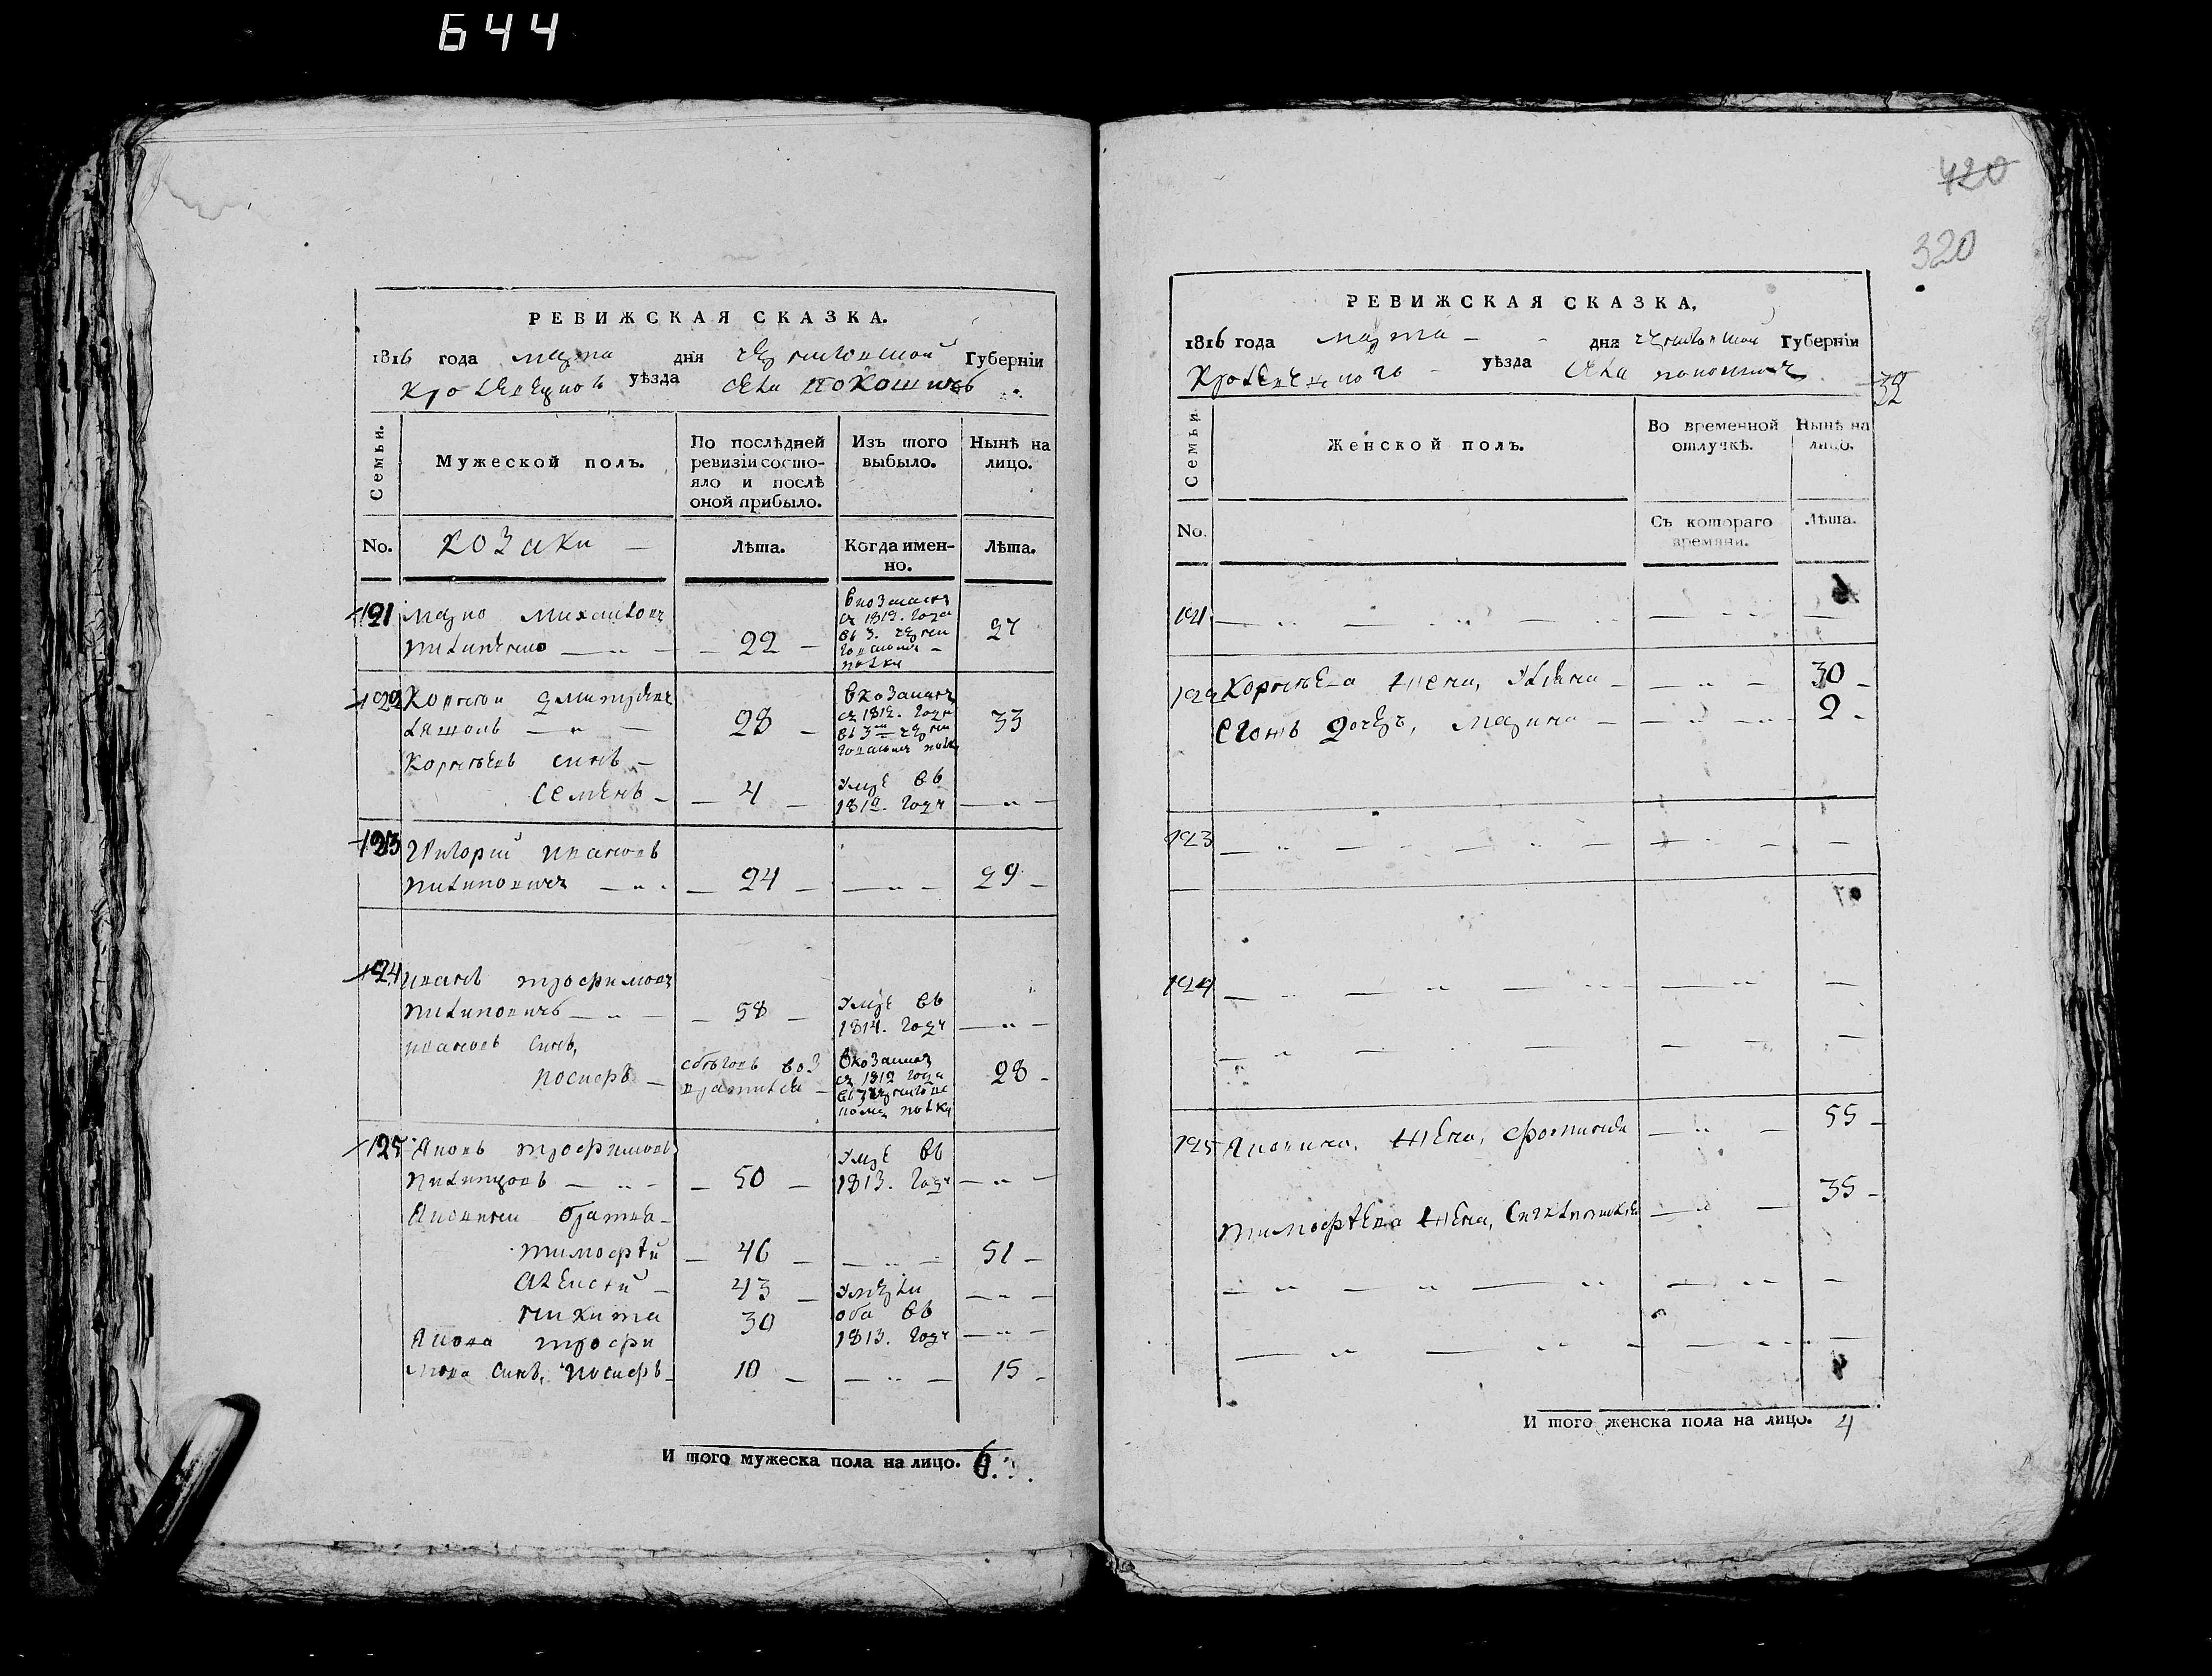 644
РЕВИЖСКАЯ СКАЗКА.
1816 года марта дня черниговской Губерніи
Кролевецкого уѣзда села Покошичъ
Семьи.
Мужеской полъ.
По послѣдней ревизіи состояло и послѣ оной прибыло.
Изъ того выбыло.
Нынѣ на лицо.
No.
козаки —
Лѣта.
Когда именно.
Лѣта.
121 Марко Михайловъ
22
в козакахъ
съ 1812. года
въ 3. черни
говскомъ
полку
27
122 Корней Дмитріевъ
28
в козакахъ
съ 1812. года
въ 3м черни
говскомъ полку
33
Корнѣевъ синъ
Семенъ
4
Умре въ
1812. году
123 Григорий Ивановъ
Пилиповичъ
24
29
124 Иванъ Трофимовъ
Пилиповичъ
58
Умре въ
1814. году
Ивановъ синъ,
Иосифъ
28
в козакахъ
съ 1812 года
125 Яковъ Трофимовъ
50
Умре въ
1813. году
братья
Тимофѣй
46
51
Алексѣй
43
Умерли
Никита
30
оба въ
1813. году
Трофи
мова синъ, Иосифъ
10
15
И того мужеска пола на лицо. 6.
420
320
РЕВИЖСКАЯ СКАЗКА,
1816 года марта дня черниговской Губерніи
Кролевецкого уѣзда села Покошичъ
32
Семьи
Женской полъ.
Во временной отлучкѣ.
Нынѣ на лицо.
No.
Съ котораго времяни.
Лѣта.
121
122 Корнѣева жена, Уляна
30
Егожъ дочерь, Марина
2
123
124
125 жена,
55
Тимофѣева жена,
35
И того женска пола на лицо. 4